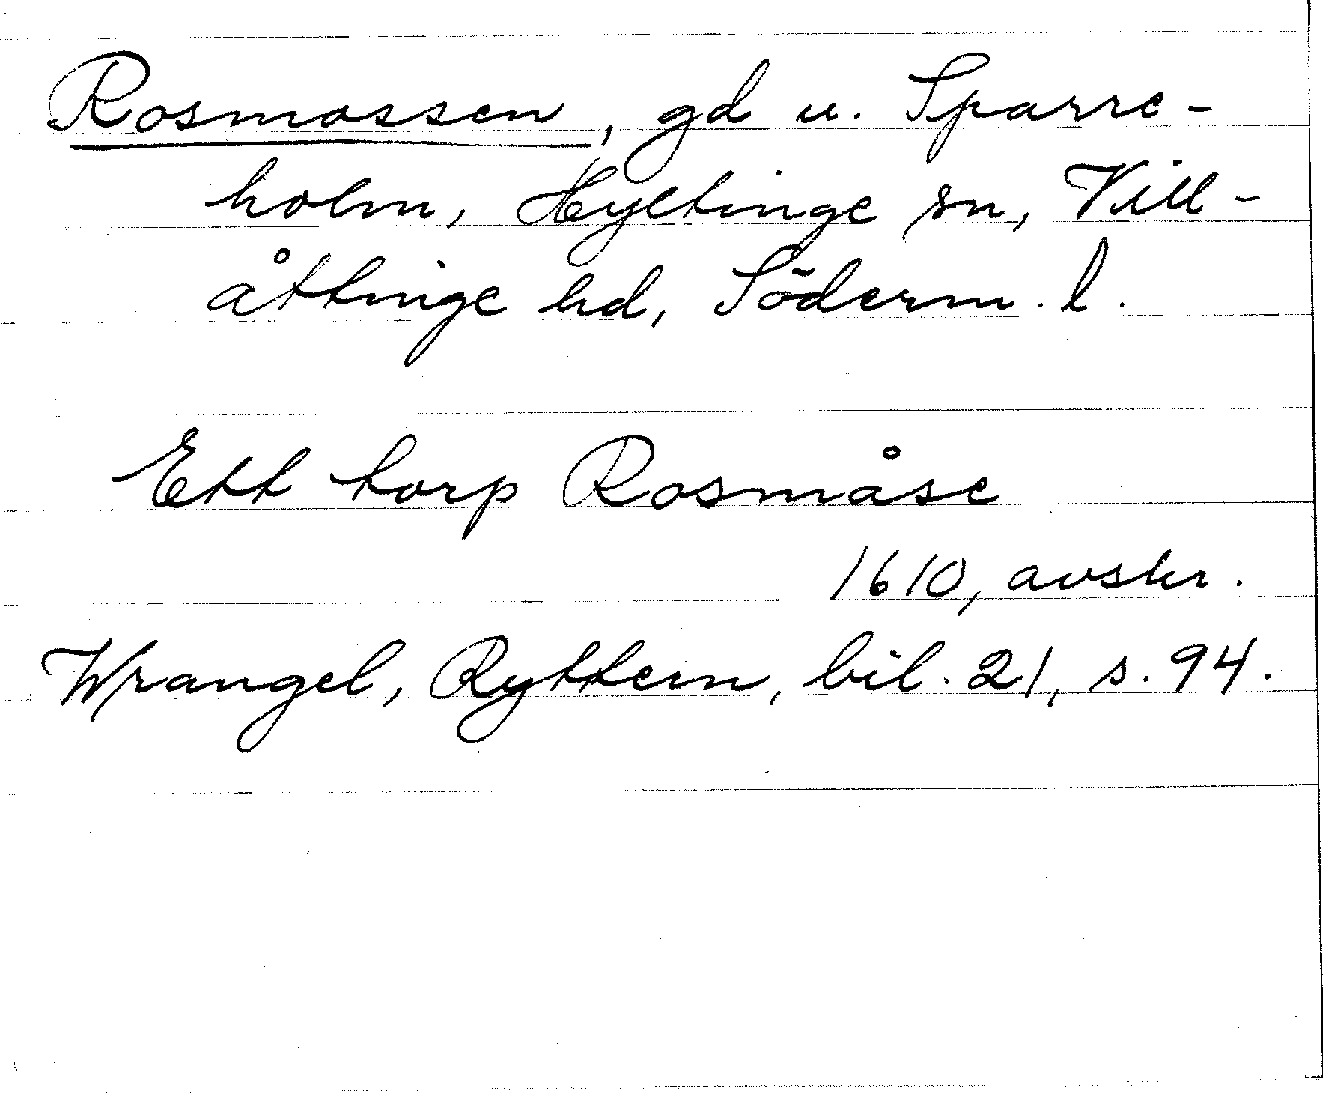 Rosmossen, gd u. Sparre-
holm, Hyltinge sn, Vill-
åttinge hd, Söderm. l.
Ett torp Rosmåse
1610, avskr.
Wrangel, Ryttern, bil. 21, s. 94.